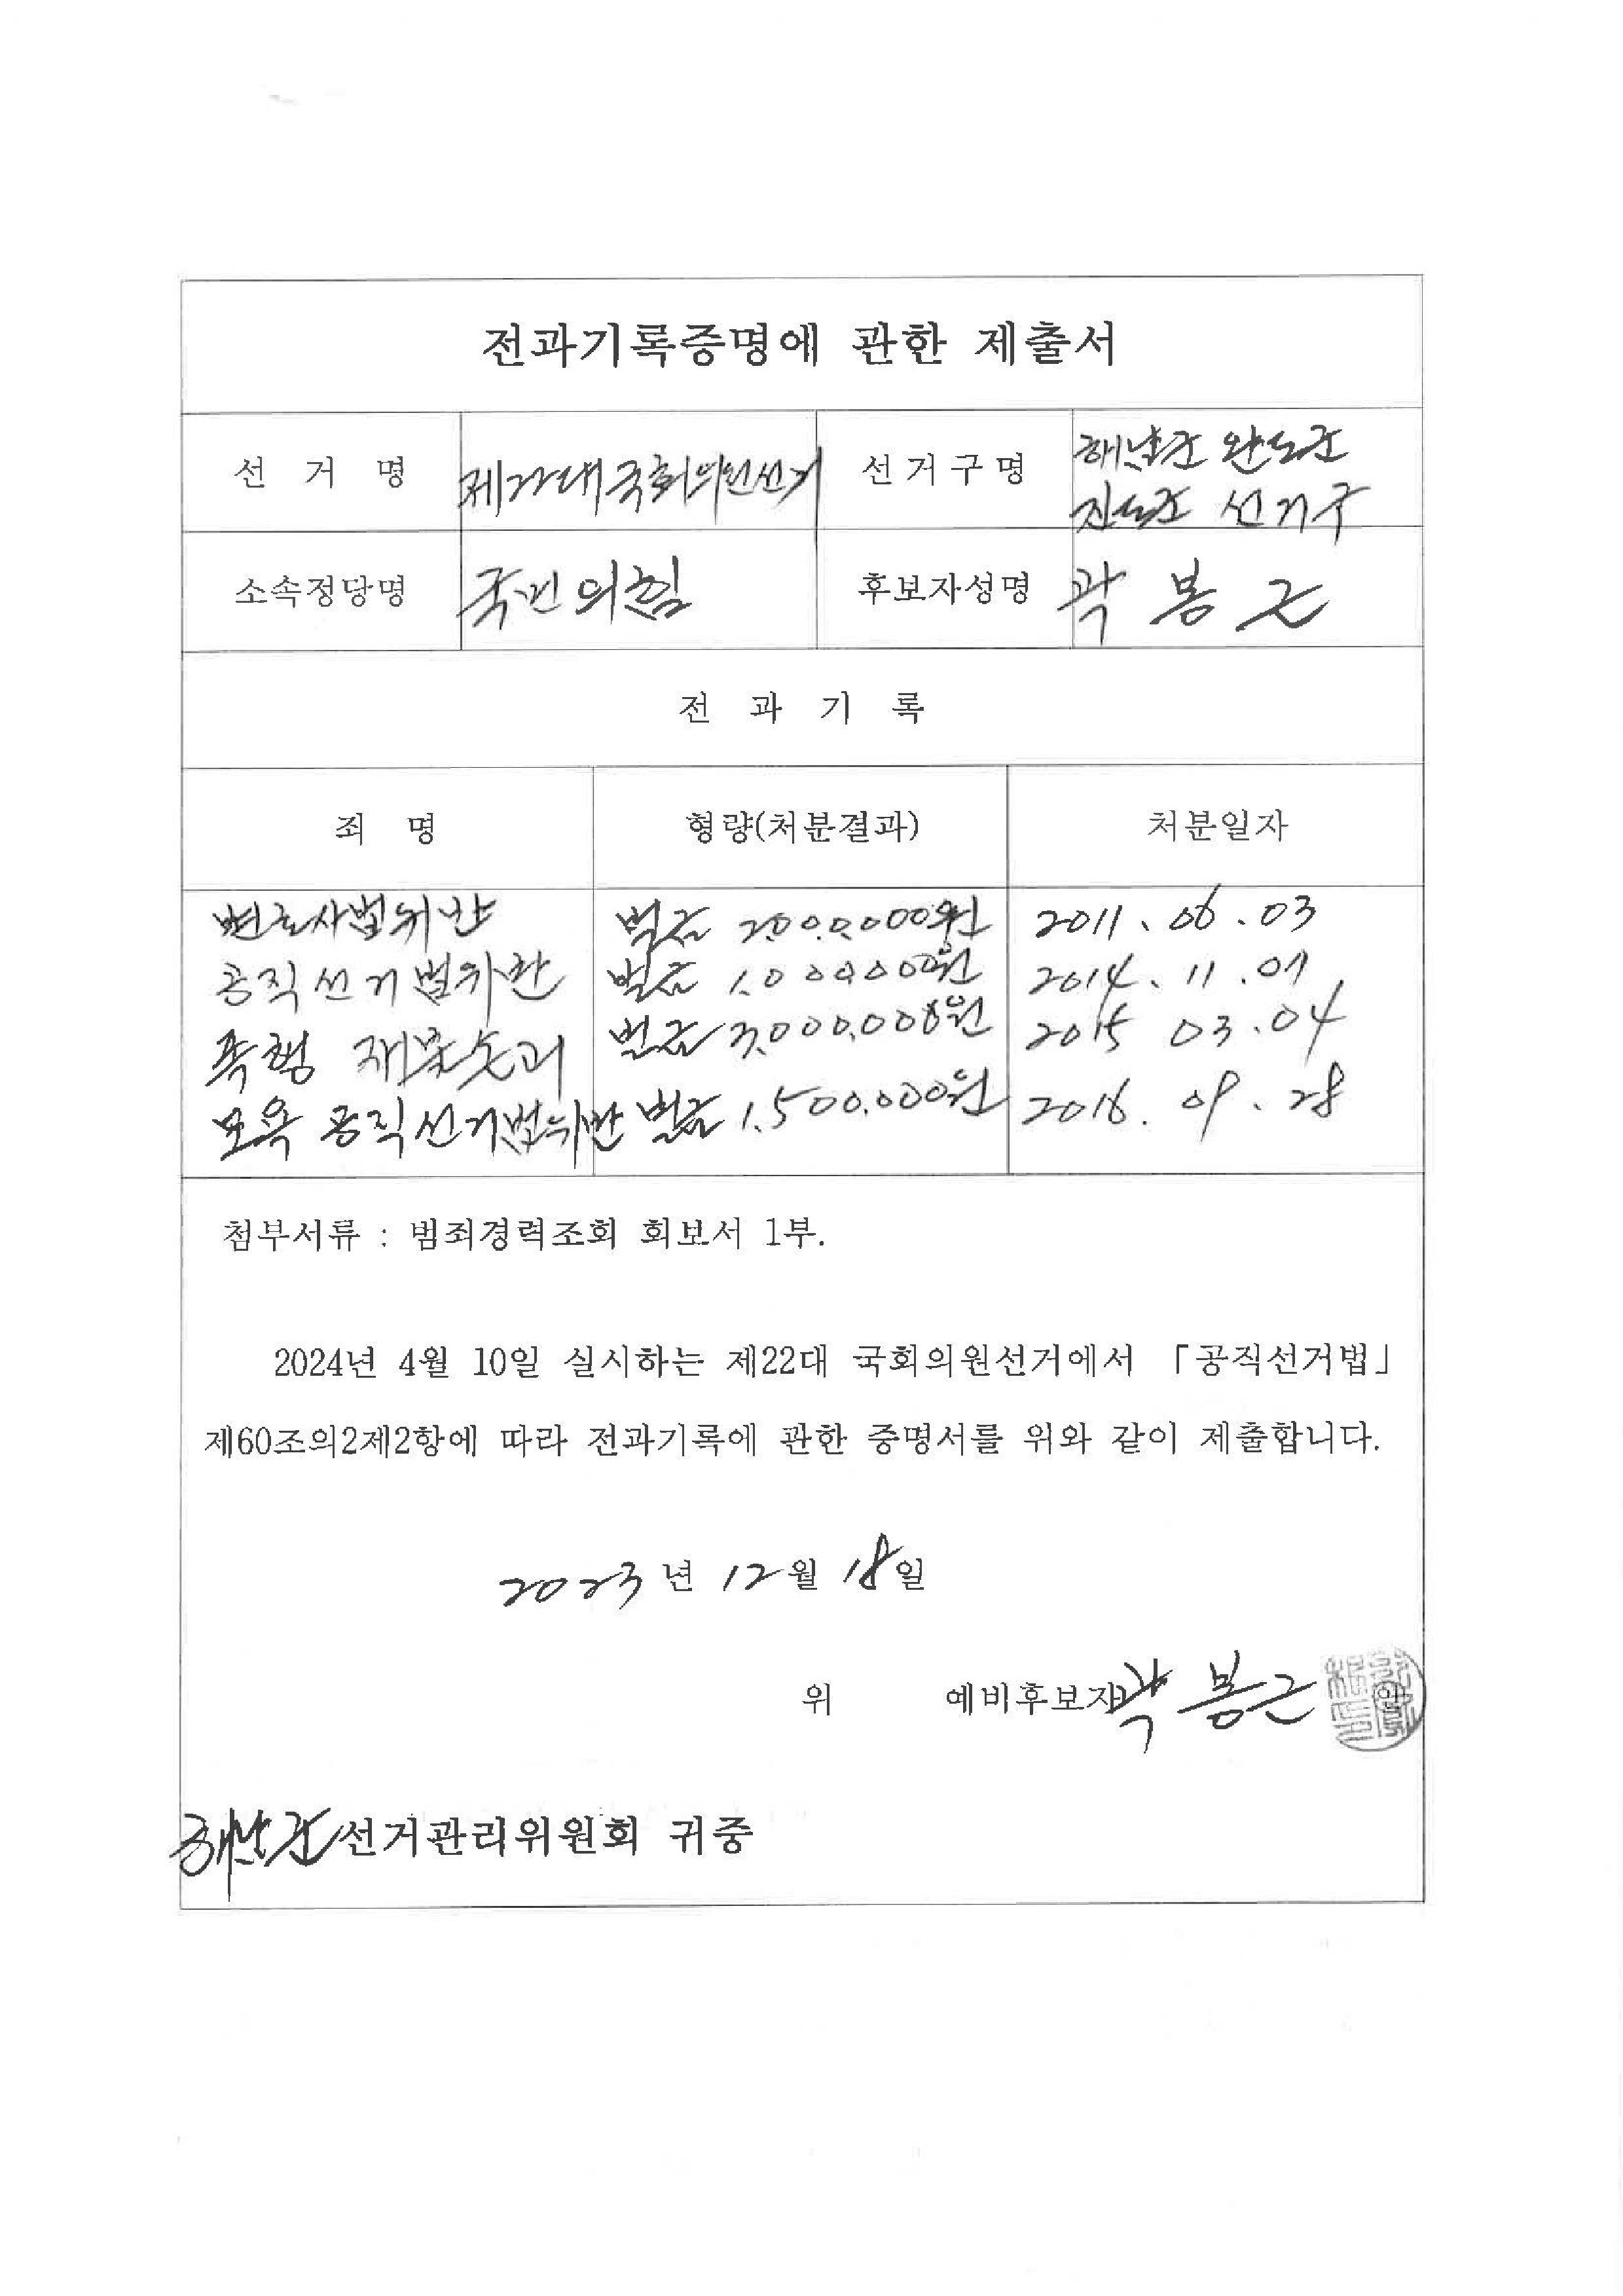 전과기록증명에 관한 제출서
선 거 명 제22대국회의원선거 선거구명 해남군 완도군
진도군 선거구
소속정당명 국민의힘 후보자성명 곽봉근
전 과 기 록
죄 명 형량(처분결과) 처분일자
변호사법위반 벌금 2,000,000원 2011. 06. 03
공직선거법위반 벌금 1,000,000원 2014. 11. 07
폭행 재물손괴 벌금 3,000,000원 2015 03. 04
모욕 공직선거법위반 벌금 1,500,000원 2016. 09. 28
첨부서류 : 범죄경력조회 회보서 1부.
2024년 4월 10일 실시하는 제22대 국회의원선거에서 「공직선거법」
제60조의2제2항에 따라 전과기록에 관한 증명서를 위와 같이 제출합니다.
2023년 12월 18일
위 예비후보자 곽봉근
해남군선거관리위원회 귀중